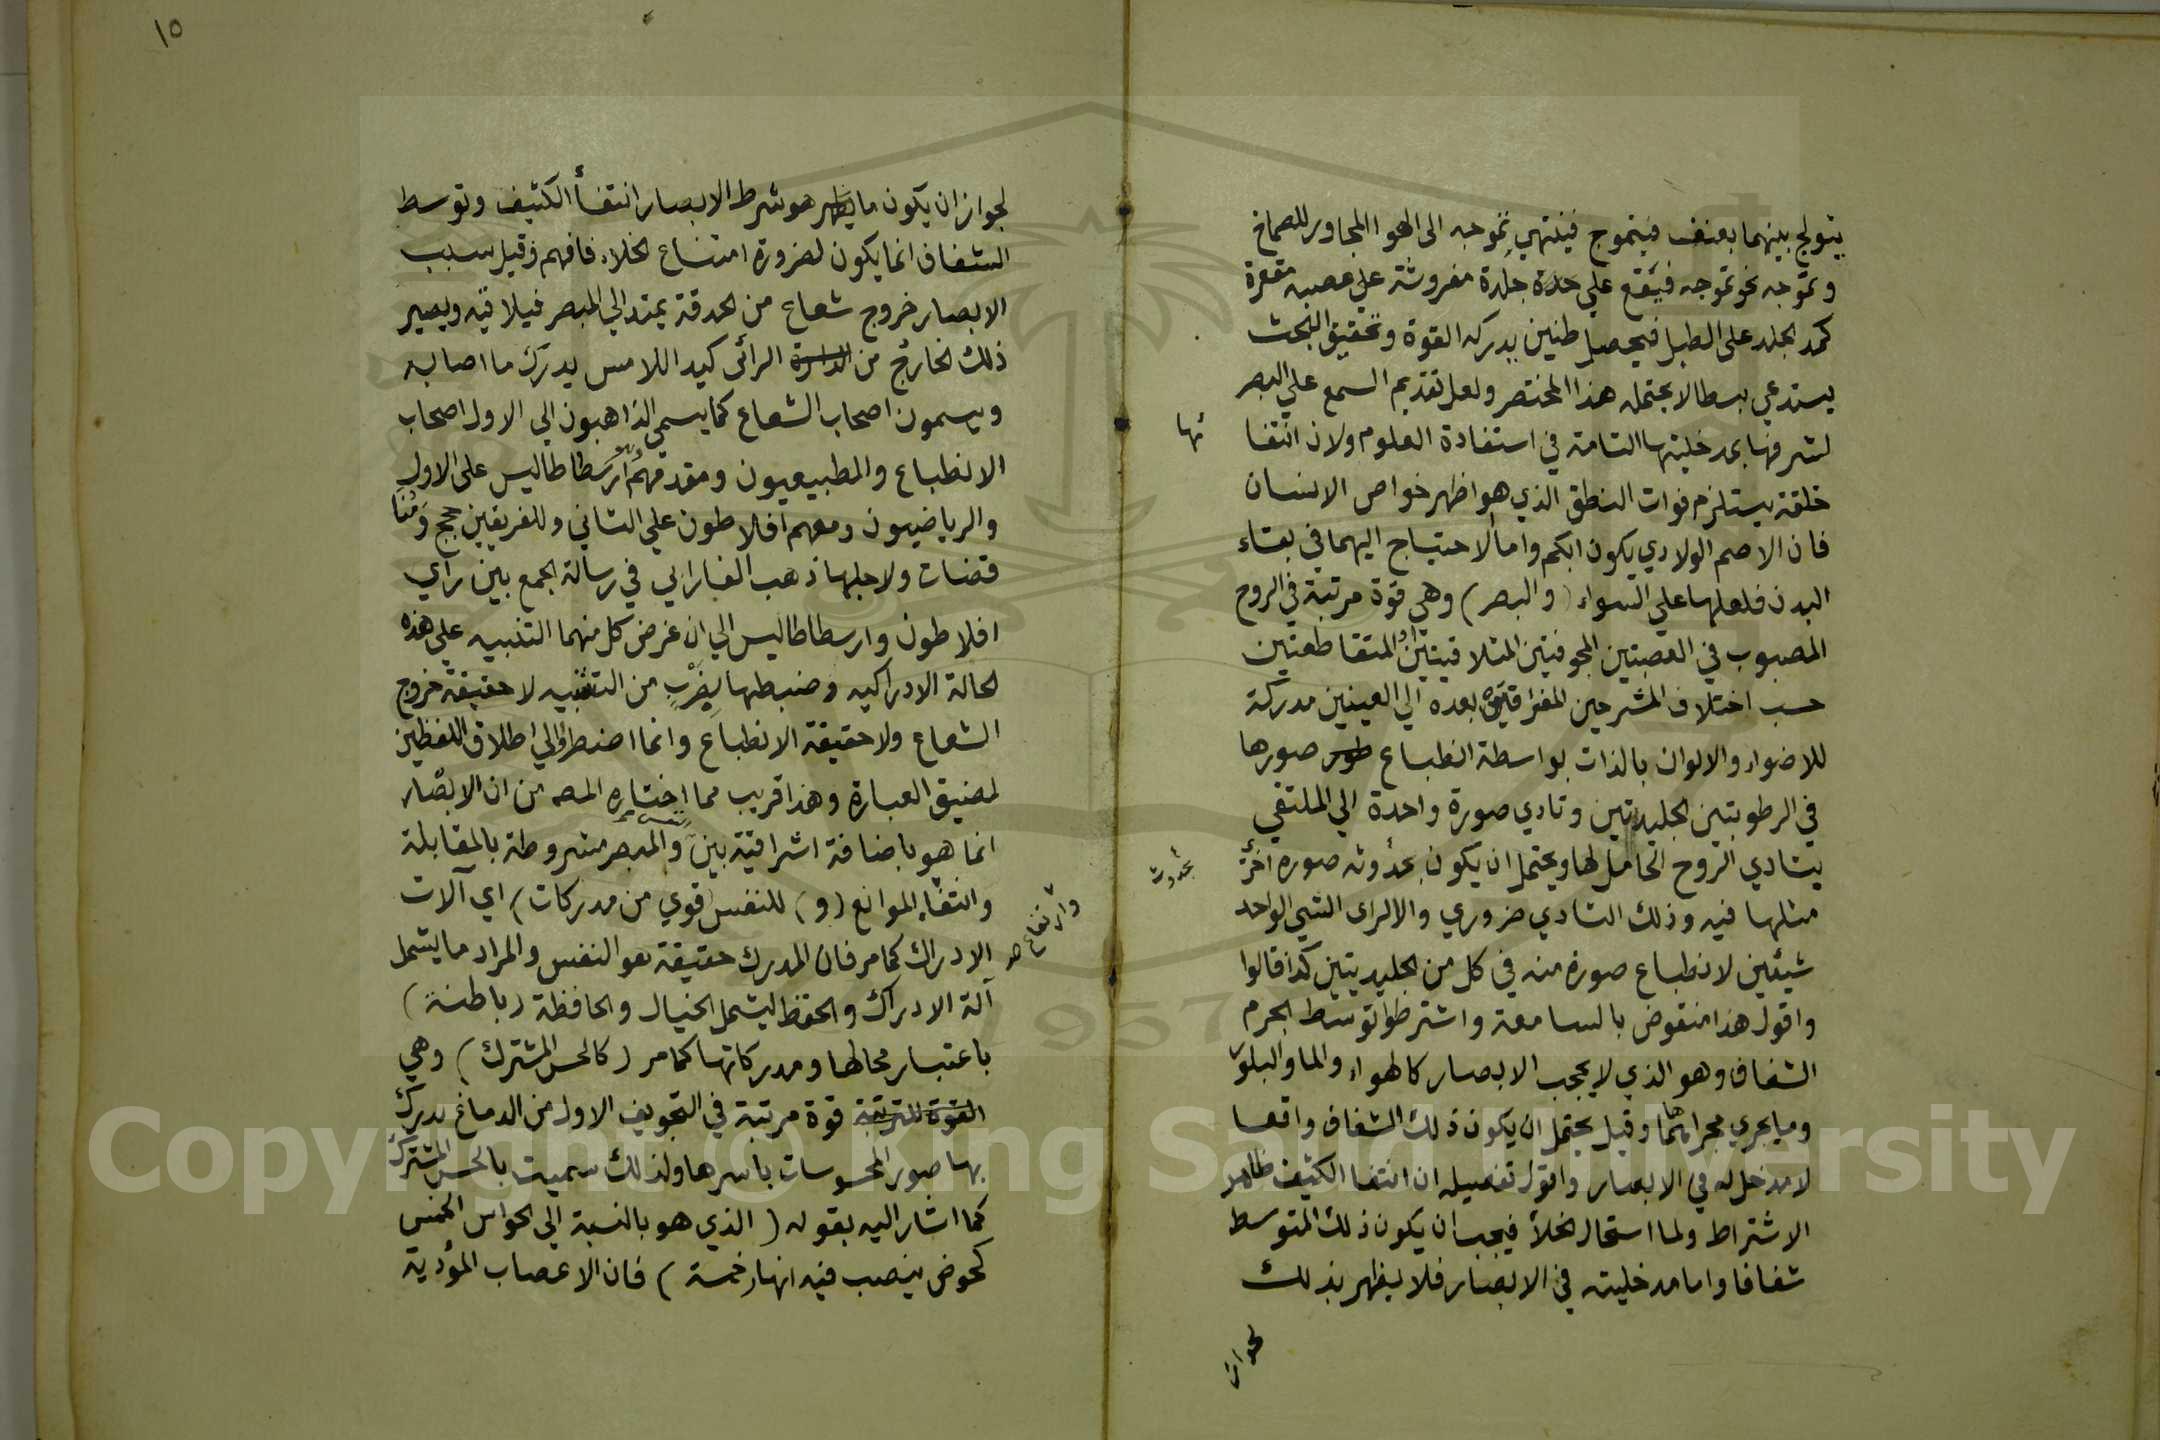 يتولج بينهما بعنف فيتموج فينتهي تموجه الى الهوا المجاور للصماخ
وتموجه نحو تموجه فيقع على جلدة مفروشة على عصبه مقعرة
كمد الجلد على الطبل فيحصل طنين يدركه القوة وتحقيق البحث
يستدعي بسطا لا يحتمله هذا المختصر ولعل تقديم السمع على البصر
لشرفها بمدخليتها التامة في استفادة العلوم ولان انتفا
ئها
خلقة يستلزم فوات النطق الذي هو اظهر خواص الانسان
فان الاصم الولادي يكون ابكم واما الاحتياج اليهما في بقاء
البدن فلعلها على السواء (والبصر) وهي قوة مرتبة في الروح
المصبوب في العصبتين المجوفتين المتلاقيتين او المتقاطعتين
حسب اختلاف المشرحين المفترقتين بعده الي العينين مدركة
للاضواء والالوان بالذات بواسطة انطباع صورها
في الرطوبتين الجليديتين وتادي صورة واحدة الي الملتقي
يتادي الروح الحامل لها ويحتمل ان يكون بحدوث صورة اخرى
بحدوث
مثلها فيه وذلك التادي ضروري والا لراى الشي الواحد
شيئين لانطباع صورة منه في كل من الجليديتين كذا قالوا
واقول هذا منقوض بالسامعة واشترطوا توسط الجرم
الشفاف وهو الذي لا يحجب الابصار كالهواء والما والبلور
وما يجري مجراهما وقيل يحتمل ان يكون ذلك الشفاف واقعا
لا مدخل له في الابصار واقول تفصيله ان انتفا الكثيف ظاهر
الاشتراط ولما استحال الخلأ فيجب ان يكون ذلك المتوسط
شفافا واما مدخليته في الابصار فلا يظهر بذلك
لجواز ان
١٥
لجواز ان يكون ما يظهر هو شرط الابصار انتفأ الكثيف وتوسط
الشفاف انما يكون لضرورة امتناع الخلاء فافهم وقيل سبب
الابصار خروج شعاع من الحدقة يمتد الي المبصر فيلاقيه ويصير
ذلك الخارج من الرائى كيد اللامس يدرك ما اصابه
ويسمون اصحاب الشعاع كما يسمى الذاهبون الي الاول اصحاب
الانطباع والطبيعيون ومقدمهم ارسطاطاليس على الاول
والرياضيون ومعهم افلاطون علي الثاني وللفريقين حجج ومنا
قضات ولاجلها ذهب الفارابي في رسالة الجمع بين رأي
افلاطون وارسطاطاليس الي ان غرض كل منهما التنبيه على هذه
الحالة الادراكيه وضبطها بضرب من التشبيه لا حقيقة خروج
الشعاع ولا حقيقة الانطباع وانما اضطروا الي اطلاق اللفظين
لضيق العبارة وهذا قريب مما اختاره المصـ من ان الابصار
انما هو باضافة اشراقية بين النفس والمبصر مشروطة بالمقابلة
وانتفاء الموانع (و) للنفس (قوي من مدركات) اي آلات
وارتفاع صـ
الادراك كما مر فان المدرك حقيقة هو النفس والمراد ما يشمل
آلة الادراك والحفظ ليشمل الخيال والحافظة (باطنة)
باعتبار محالها ومدركاتها كما مر (كالحس المشترك) وهي
القوة المترتبة قوة مرتبة في التجويف الاول من الدماغ يدرك
بها صور المحسوسات باسرها ولذلك سميت بالحس المشترك
كما اشار اليه بقوله (الذي هو بالنسبة الي الحواس الخمس
كحوض ينصب فيه انهار خمسة) فان الاعصاب المؤدية
Copyright © King Saud University
1957